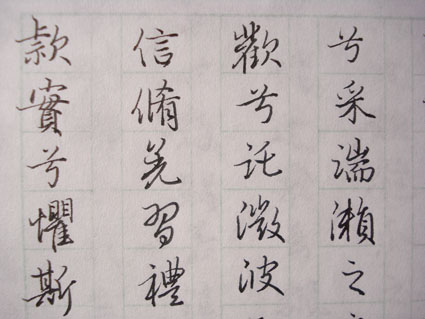 兮采湍瀨之
歡兮託微波
信脩羌習禮
款實兮懼斯